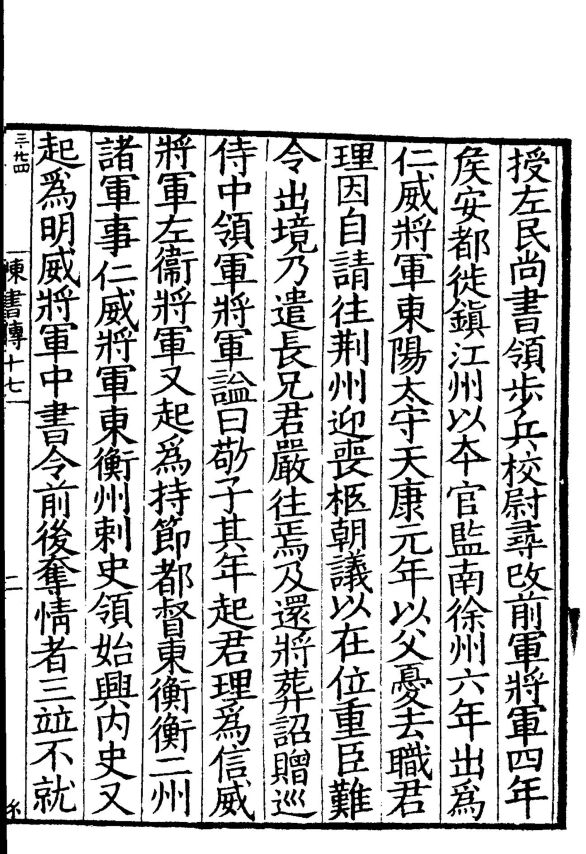 授左民尚書領步兵校尉尋改前軍將軍四年
矦安都徙鎮江州以夲官監南徐州六年出爲
仁威將軍東陽太守天康元年以父憂去職君
理因自請往荆州迎喪柩朝議以在位重臣難
令出境乃遣長兄君嚴往焉及還將葬詔贈巡
侍中領軍將軍謚曰敬子其年起君理爲信威
將軍左衛將軍又起爲持節都督東衡衡二州
諸軍事仁威將軍東衡州刺史領始興内史又
起爲明威將軍中書令前後奪情者三竝不就
三卅四
陳書傳十七
二